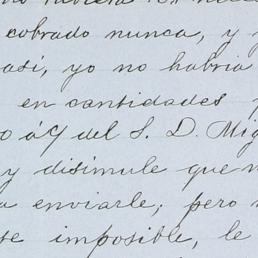 cobrado nunca, y
así, yo no habría
en cantidades
del S. D. Mig
y disimule que
enviarle; pero
se imposible, le